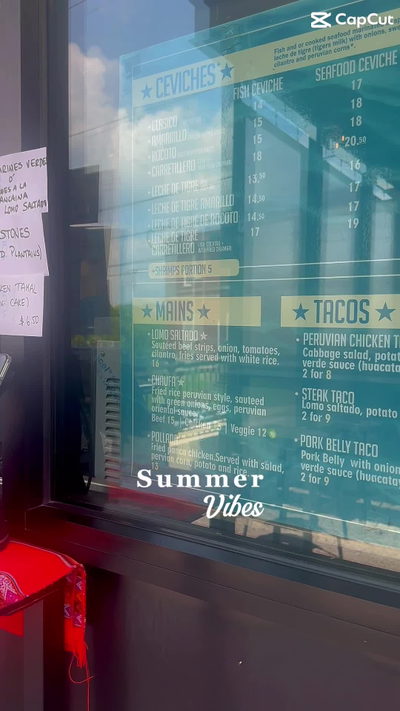 CapCut
Fish and or cooked seafood
leche de tigre (tigers milk) with onions,
cilantro and peruvian corns*.
★ CEVICHES ★
FISH CEVICHE
SEAFOOD CEVICHE
• CLASICO 14 17
• AMARILLO 15 18
• ROCOTO 15 18
• CARRETILLERO 18 20.50
• LECHE DE TIGRE 13.50 16
• LECHE DE TIGRE AMARILLO 14.50 17
• LECHE DE TIGRE DE ROCOTO 14.50 17
• LECHE DE TIGRE
CARRETILLERO 17 19
• SHRIMPS PORTION 5
★ MAINS ★
• LOMO SALTADO ★
Sauteed beef strips, onion, tomatoes,
cilantro, fries served with white rice.
16
• CHAUFA ★
Fried rice peruvian style, sauteed
with green onions, eggs, peruvian
oriental sauce.
Beef 15 Veggie 12
• POLLO
Fried chicken. Served with salad,
corn, potato and rice
13
★ TACOS ★
• PERUVIAN CHICKEN
Cabbage salad,
verde sauce
2 for 8
• STEAK TACO
Lomo saltado, potato
2 for 9
• PORK BELLY TACO
Pork Belly with
verde sauce
2 for 9
VERDE
A LA
LOMO SALTADO
$6.50
Summer
Vibes